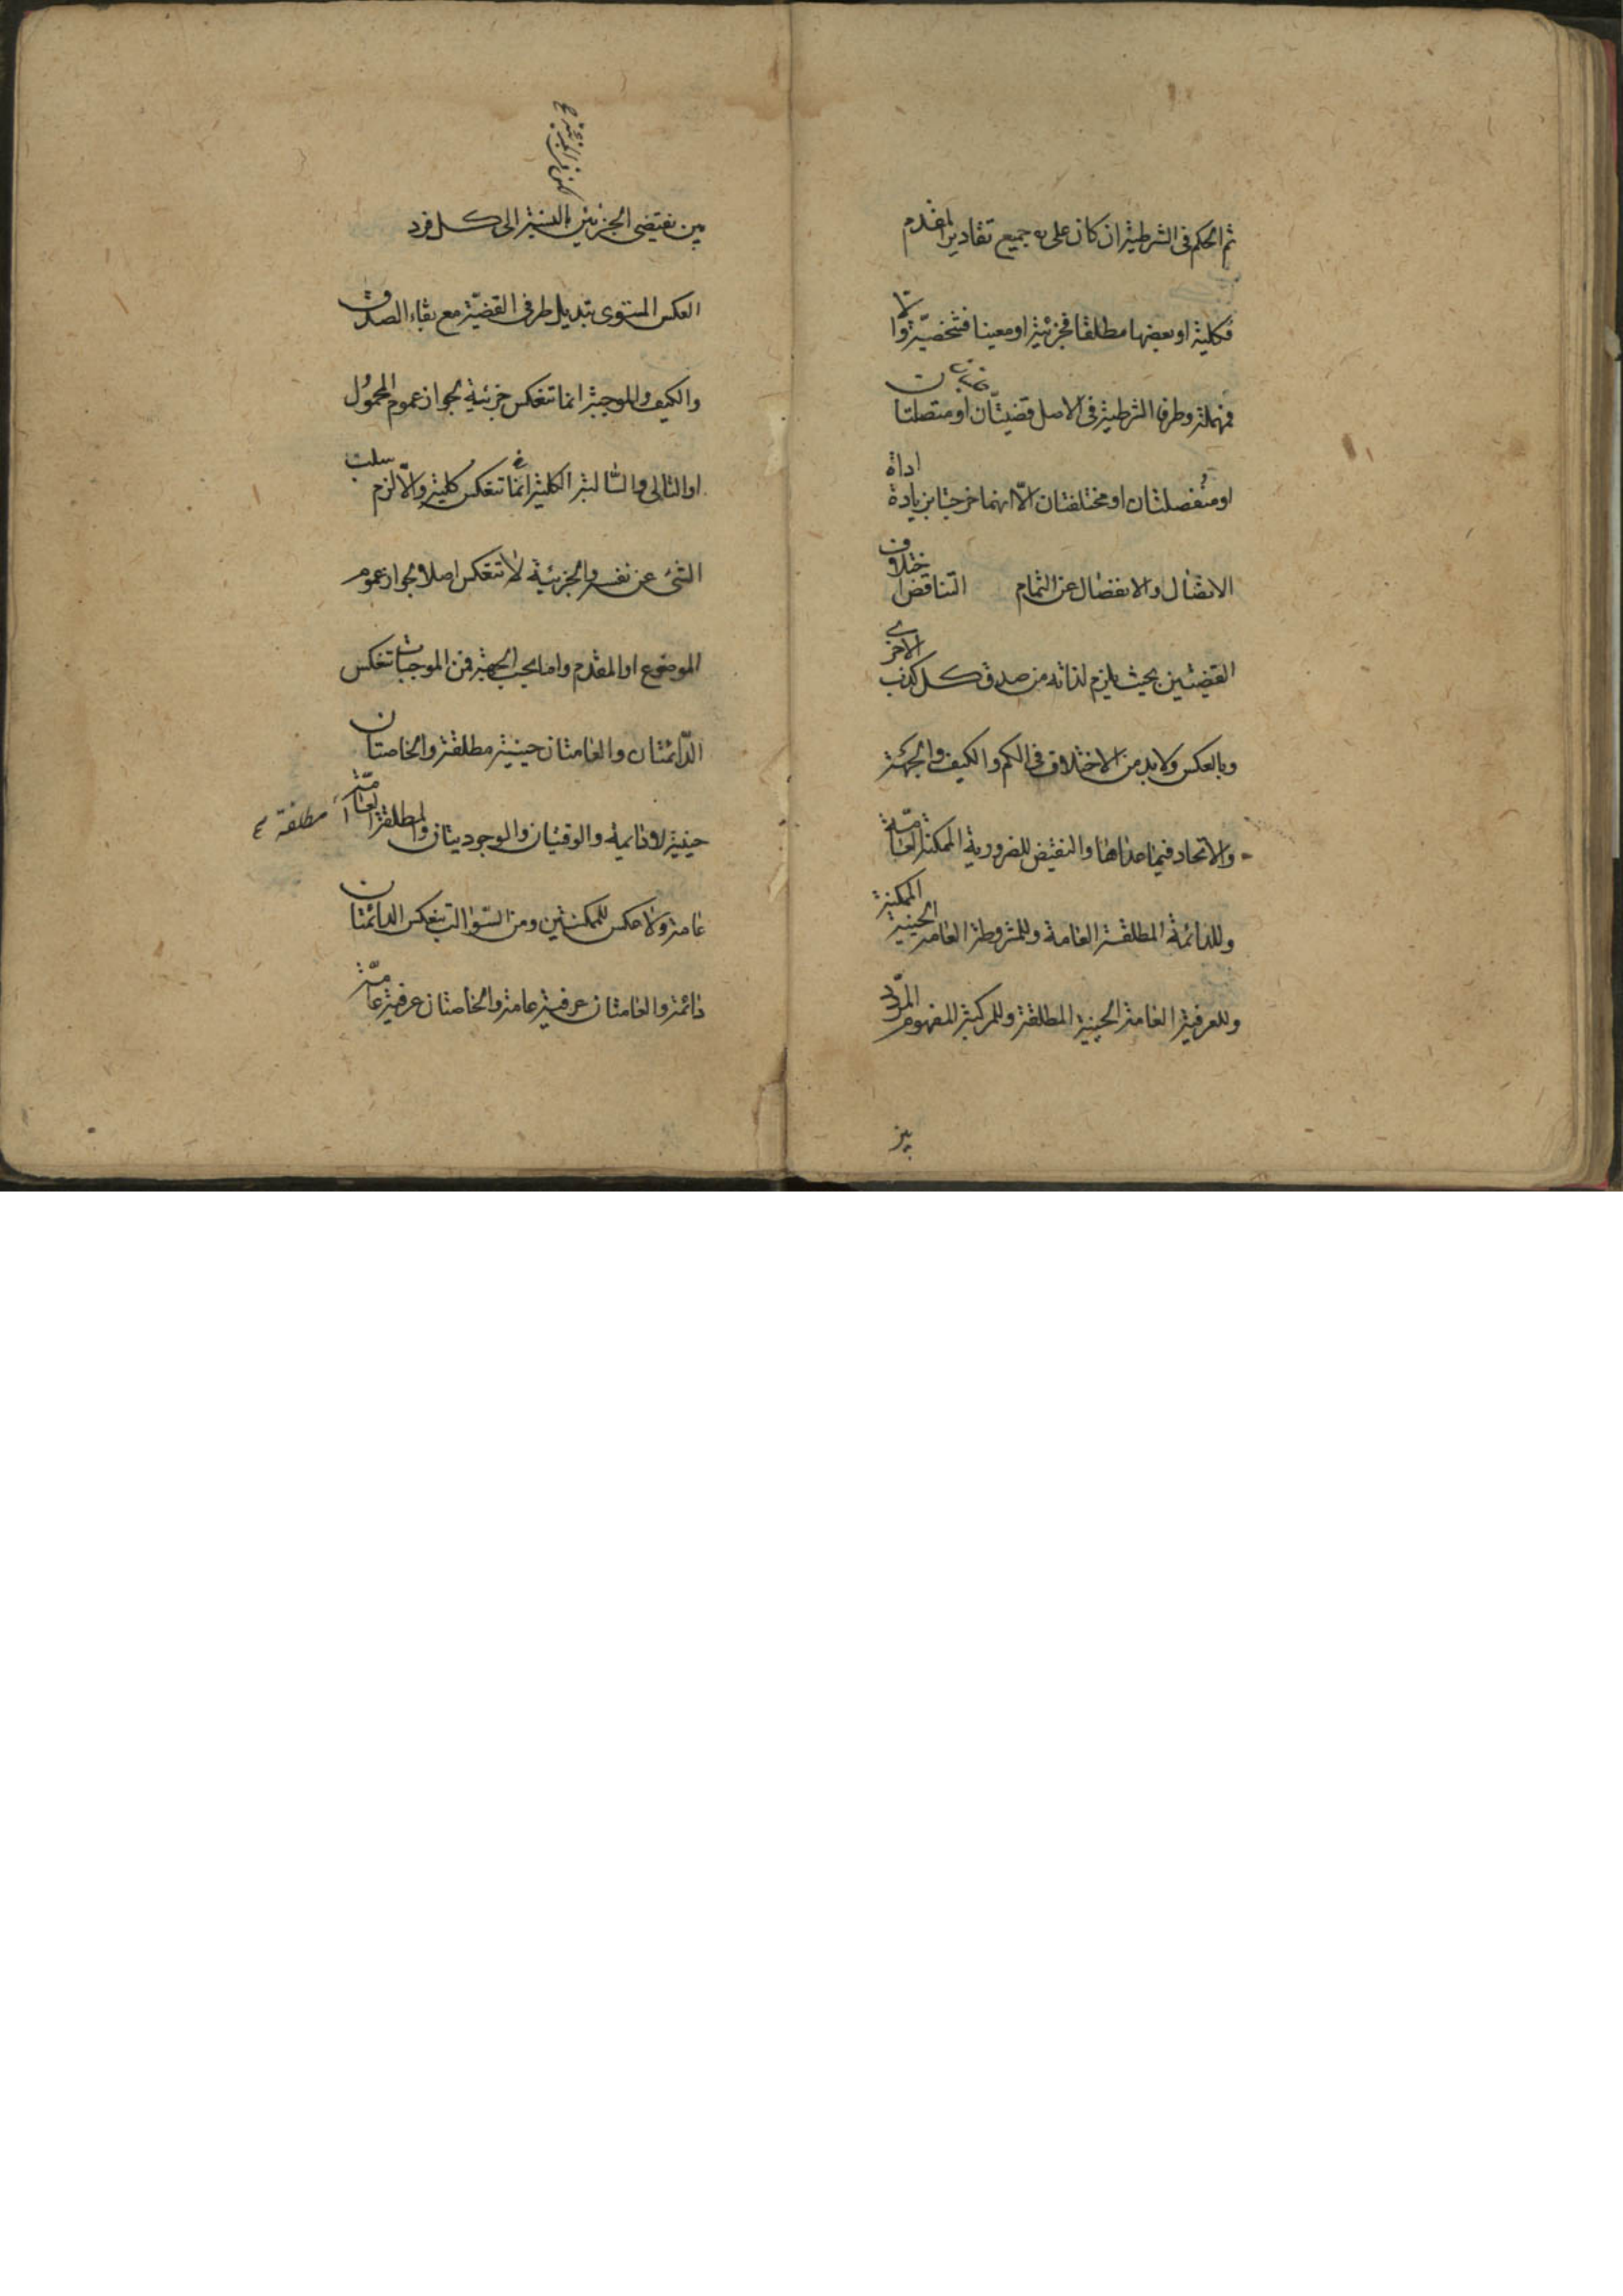 ثم الحكم فى الشرطية ان كان على جميع تقادير المقدم
فكلية او بعضها مطلقا فجزئية او معينا فشخصية والا
فمهملة وطرفا الشرطية فى الاصل قضيتان او متصلتان
او منفصلتان او مختلفتان الّا انهما خرجتا بزيادة اداة
الاتصال والانفصال عن التمام التناقض اختلاف
القضيتين بحيث يلزم لذاته من صدق كل كذب الاخرى
وبالعكس ولا بد من الاختلاف فى الكم والكيف والجهة
والاتحاد فيما عداها والنقيض للضرورية الممكنة العامّة
وللدائمة المطلقة العامة وللمشروطة العامة الحينية الممكنة
وللعرفية العامة الحينية المطلقة وللمركبة المفهوم المردّد
بين
بين نقيضى الجزئين بالنسبة الى كل فرد
العكس المستوى تبديل طرفى القضيّة مع بقاء الصدق
والكيف والموجبة انما تنعكس جزئية لجواز عموم المحمول
او التالى والسّالبة الكلية انما تنعكس كلية والّا لزم سلب
الشئ عن نفسه والجزئية لا تنعكس اصلا لجواز عموم
الموضوع او المقدم واما بحسب الجهة فمن الموجبات تنعكس
الدّائمتان والعامتان حينية مطلقة والخاصتان
حينية لا دائمية والوقتيتان والوجوديتان والمطلقة العامّة
مطلقة
عامة ولا عكس للممكنتين ومن السّوالب تنعكس الدائمتان
دائمة والعامتان عرفية عامة والخاصتان عرفية عامّة